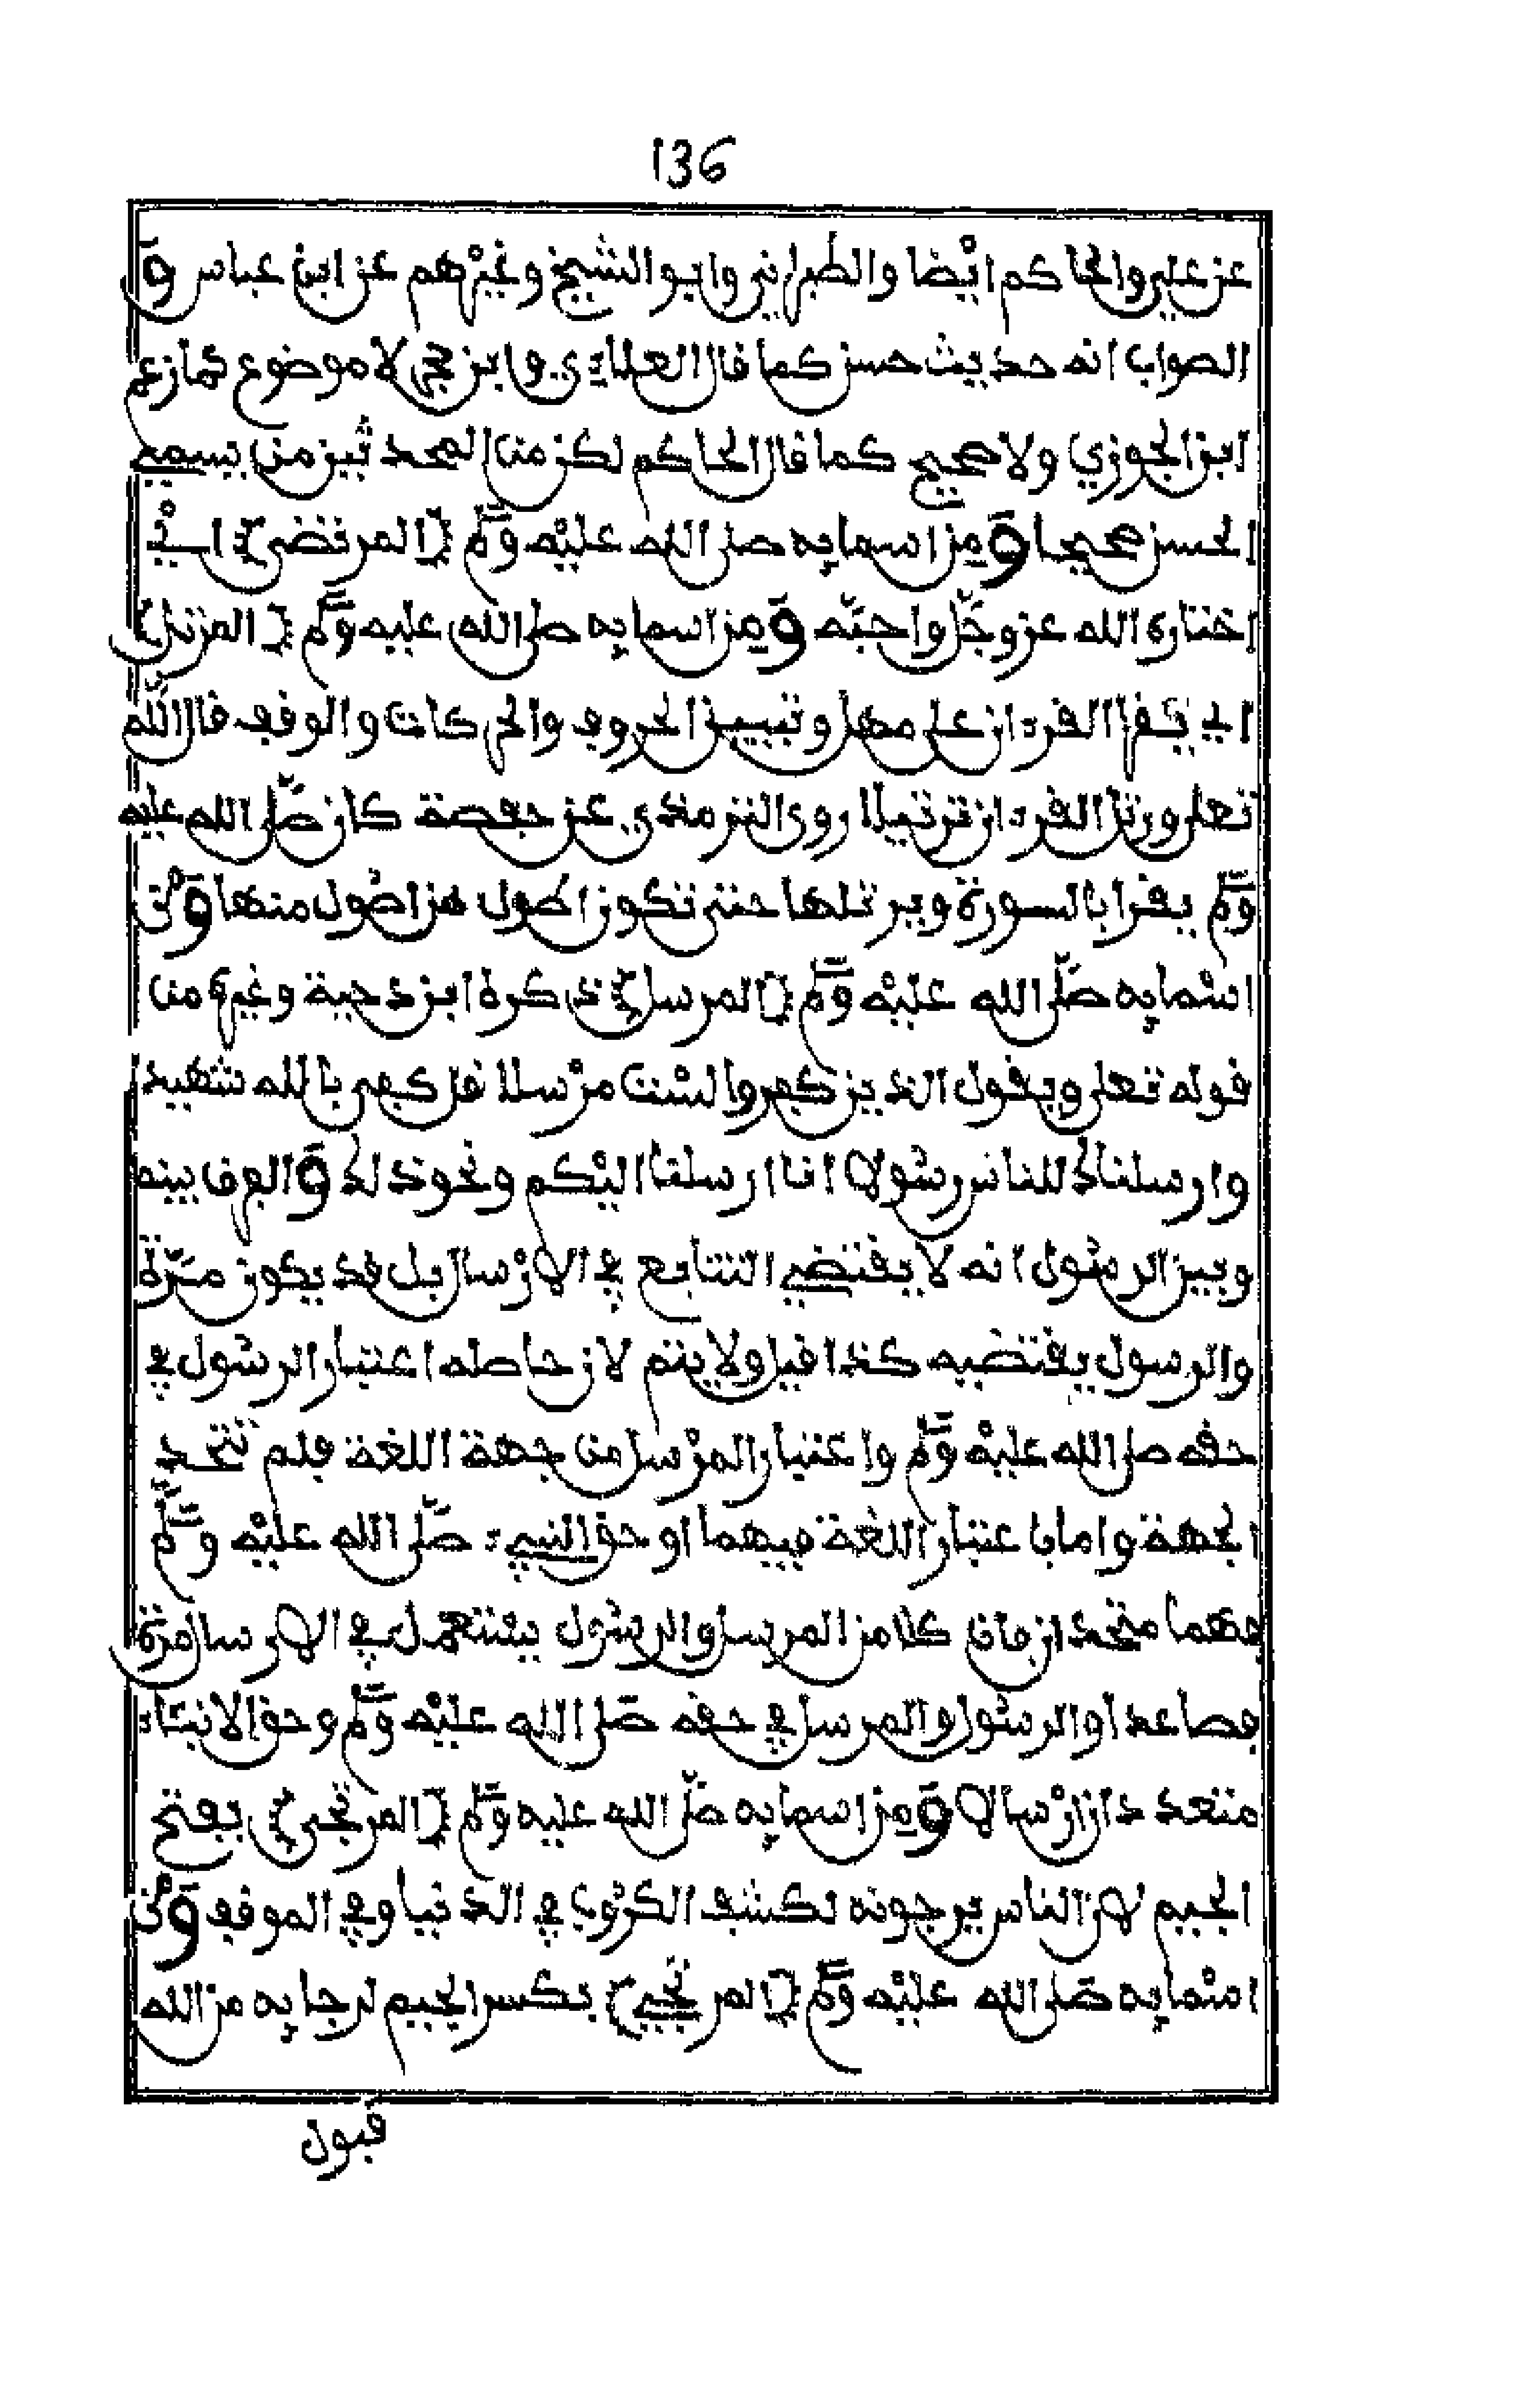 136
عن علي والحاكم ايضا والطبراني وابو الشيخ وغيرهم عن ابن عباس و
الصواب انه حديث حسن كما قال العلاءي وابن حجر لا موضوع كما زعم
ابن الجوزي ولا صحيح كما قال الحاكم لكن من المحدثين من يسمي
الحسن صحيحا ومن اسمايه صلى الله عليه وسلم (المرتضى) اي
اختاره الله عز وجل واحبه ومن اسمايه صلى الله عليه وسلم (المرتل)
اي يقرا القرءان على مهل وتبيين الحروف والحركات والوقف قال الله
تعلى ورتل القرءان ترتيلا روى الترمذي عن حفصة كان صلى الله عليه
وسلم يقرا بالسورة ويرتلها حتى تكون اطول من اطول منها ومن
اسمايه صلى الله عليه وسلم (المرسل) ذكره ابن دحية وغيره من
قوله تعلى ويقول الذين كفروا لست مرسلا قل كفى بالله شهيدا
وارسلناك للناس رسولا انا ارسلنا اليكم ونحو ذلك والفرق بينه
وبين الرسول انه لا يقتضي التتابع في الارسال بل قد يكون مرة
والرسول يقتضيه كذا قيل ولا يتم لان حاصله اعتبار الرسول في
حقه صلى الله عليه وسلم واعتبار المرسل من جهة اللغة فلم تتحد
الجهة واما باعتبار اللغة فيهما او حق النبيء صلى الله عليه وسلم
فهما متحدان فان كلا من المرسل والرسول يستعمل في الارسال مرة
فصاعدا والرسول والمرسل في حقه صلى الله عليه وسلم وحق الانبياء
متعددان ارسالا ومن اسمايه صلى الله عليه وسلم (المرتجى) بفتح
الجيم لان الناس يرجونه لكشف الكروب في الدنيا وفي الموقف ومن
اسمايه صلى الله عليه وسلم (المرتجي) بكسر الجيم لرجايه من الله
قبول